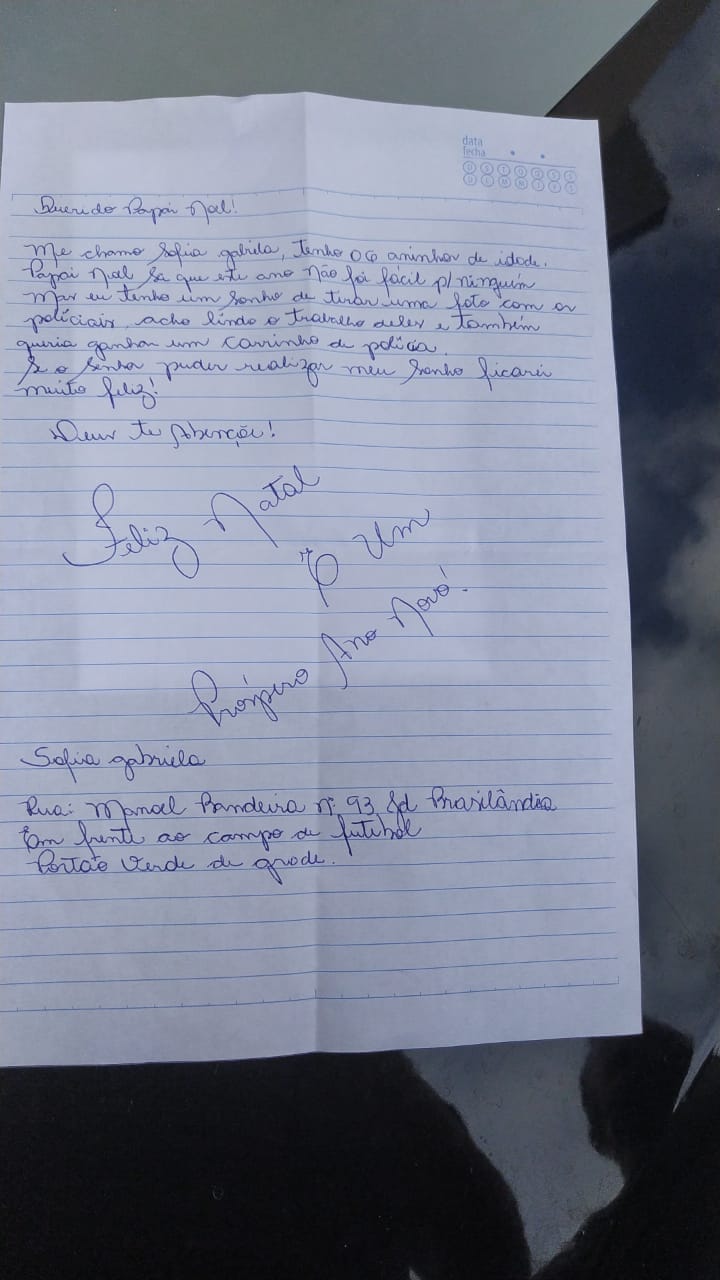 data
fecha
D S T Q Q S S
D L M M J V S
Querido Papai Noel!
Me chamo Sofia gabriela, tenho 06 aninhos de idade.
Papai Noel sa que este ano não foi fácil p/ ninguém
Mas eu tenho um sonho de tirar uma foto com os
policiais, acho lindo o trabalho deles e também
queria ganhar um carrinho de polícia.
Se o senhor puder realizar meu sonho ficarei
muito feliz!
Deus te Abençõe!
Feliz Natal
E Um
Próspero Ano Novo!
Sofia gabriela
Rua: Manoel Bandeira nº 93 Jd Brasilândia
Em frente ao campo de futebol
Portão Verde de grade.